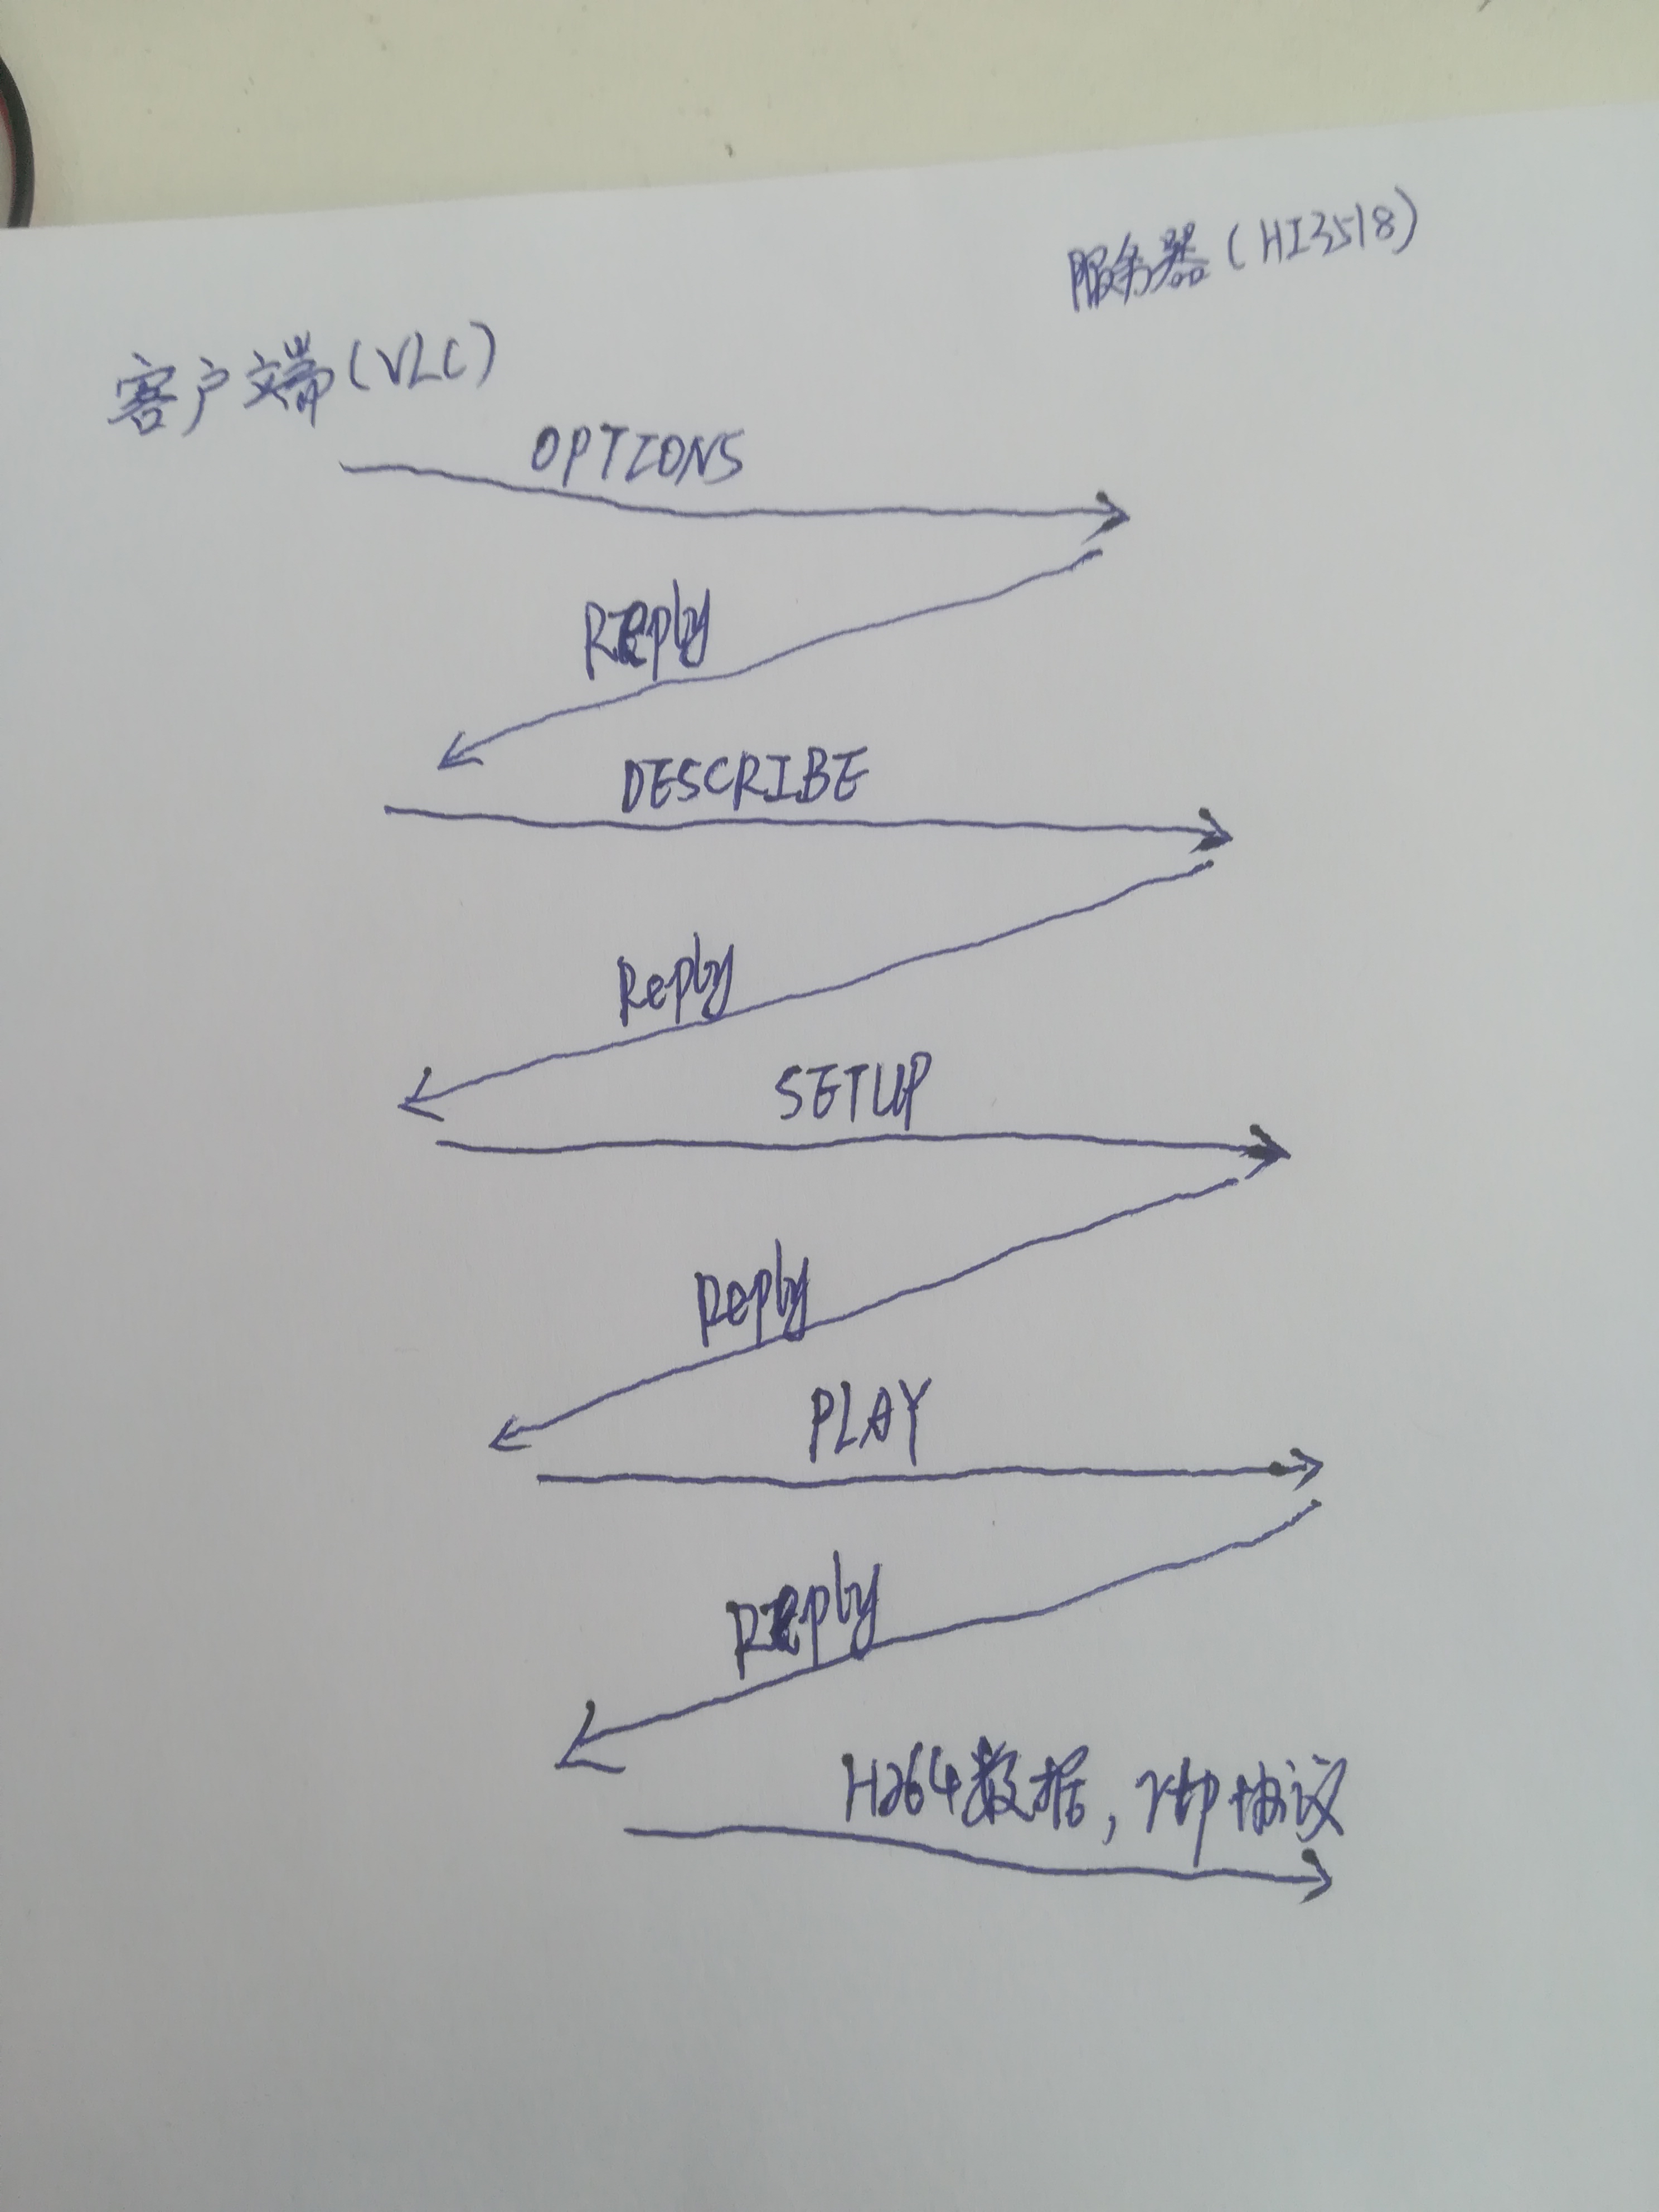 服务器(HI3518)
客户端(VLC)
OPTIONS
Reply
DESCRIBE
Reply
SETUP
Reply
PLAY
Reply
H264数据, rtp协议